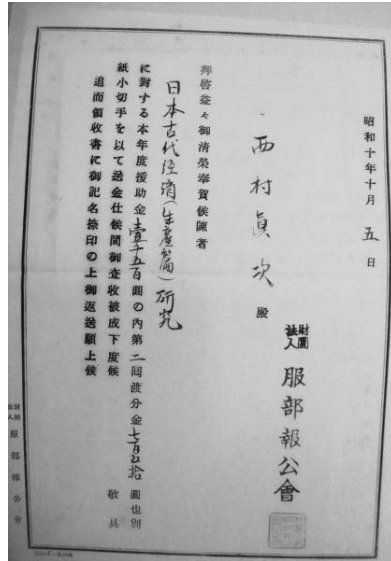 昭和十年十月五日
財團法人 服部報公會
西村眞次殿
拜啓益々御清榮奉賀候陳者
日本古代経済(生産篇)研究
に對する本年度援助金壹千五百圓の內第二回渡分金七百五拾圓也別
紙小切手を以て送金仕候間御査收被成下度候 敬具
追而領收書に御記名捺印の上御返送願上候
財團法人 服部報公會